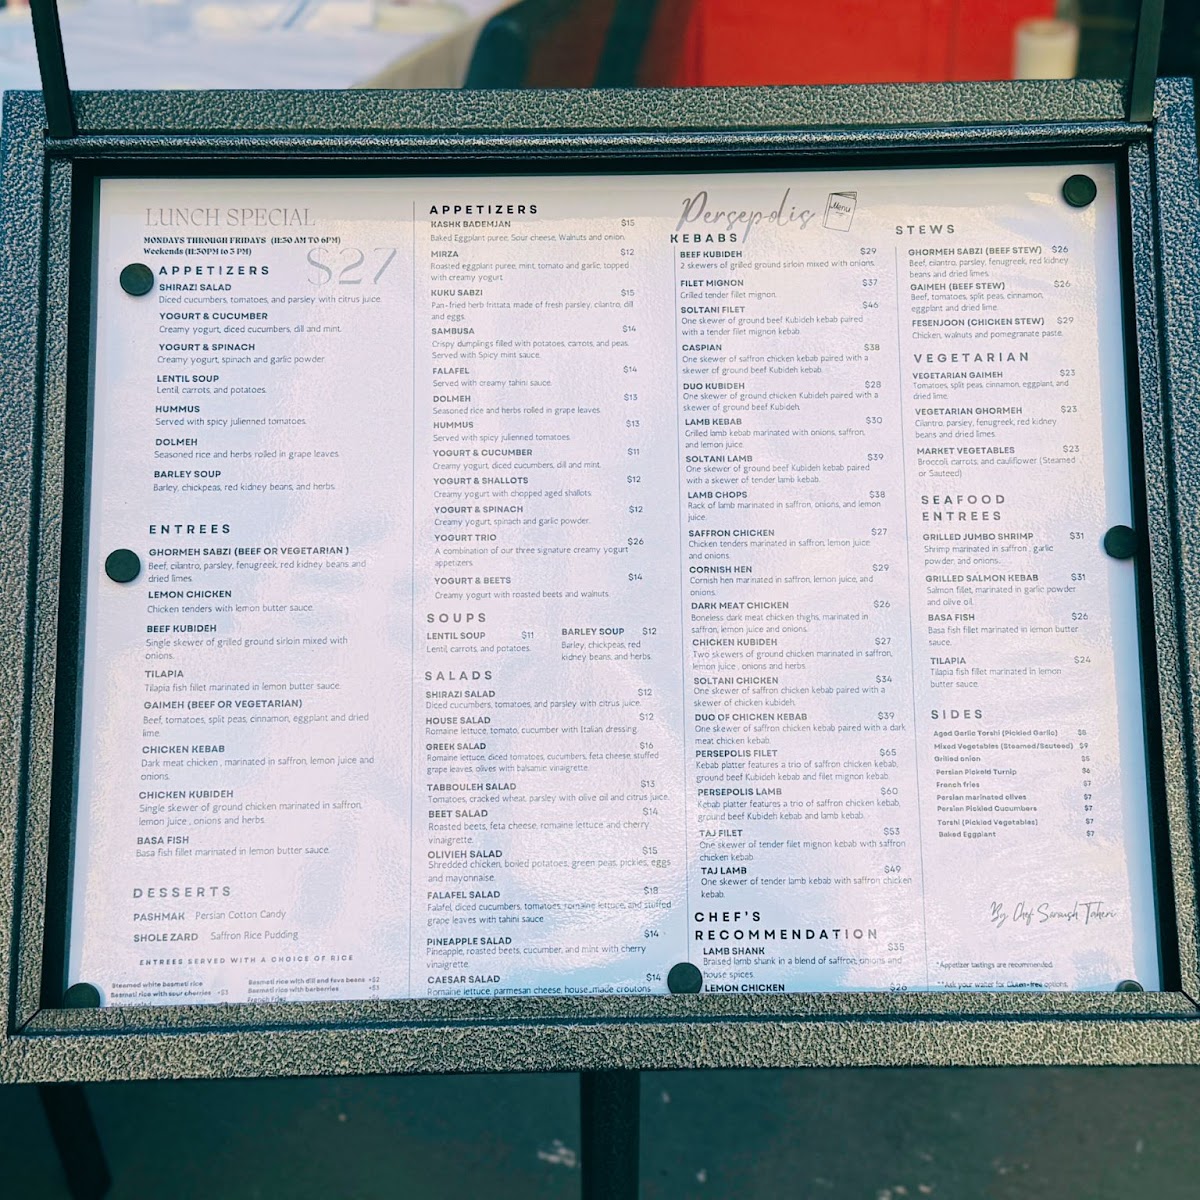 LUNCH SPECIAL
MONDAYS THROUGH FRIDAYS (11:30 AM TO 6PM)
Weekends (11:30PM to 3 PM)
$27
APPETIZERS
SHIRAZI SALAD
Diced cucumbers, tomatoes, and parsley with citrus juice.
YOGURT & CUCUMBER
Creamy yogurt, diced cucumbers, dill and mint.
YOGURT & SPINACH
Creamy yogurt, spinach and garlic powder.
LENTIL SOUP
Lentil, carrots, and potatoes.
HUMMUS
Served with spicy julienned tomatoes.
DOLMEH
Seasoned rice and herbs rolled in grape leaves.
BARLEY SOUP
Barley, chickpeas, red kidney beans, and herbs.
ENTREES
GHORMEH SABZI (BEEF OR VEGETARIAN )
Beef, cilantro, parsley, fenugreek, red kidney beans and
dried limes.
LEMON CHICKEN
Chicken tenders with lemon butter sauce.
BEEF KUBIDEH
Single skewer of grilled ground sirloin mixed with
onions.
TILAPIA
Tilapia fish fillet marinated in lemon butter sauce.
GAIMEH (BEEF OR VEGETARIAN)
Beef, tomatoes, split peas, cinnamon, eggplant and dried
lime.
CHICKEN KEBAB
Dark meat chicken , marinated in saffron, lemon juice and
onions.
CHICKEN KUBIDEH
Single skewer of ground chicken marinated in saffron,
lemon juice , onions and herbs.
BASA FISH
Basa fish fillet marinated in lemon butter sauce.
DESSERTS
PASHMAK Persian Cotton Candy
SHOLE ZARD Saffron Rice Pudding
ENTREES SERVED WITH A CHOICE OF RICE
Steamed white basmati rice
Basmati rice with sour cherries +$3
Basmati rice with dill and fava beans +$2
Basmati rice with barberries +$3
French Fries
APPETIZERS
KASHK BADEMJAN $15
Baked Eggplant puree, Sour cheese, Walnuts and onion.
MIRZA $12
Roasted eggplant puree, mint, tomato and garlic, topped
with creamy yogurt.
KUKU SABZI $15
Pan-fried herb frittata made of fresh parsley, cilantro, dill
and eggs.
SAMBUSA $14
Crispy dumplings filled with potatoes, carrots, and peas.
Served with Spicy mint sauce.
FALAFEL $14
Served with creamy tahini sauce.
DOLMEH $13
Seasoned rice and herbs rolled in grape leaves.
HUMMUS $13
Served with spicy julienned tomatoes.
YOGURT & CUCUMBER $11
Creamy yogurt, diced cucumbers, dill and mint.
YOGURT & SHALLOTS $12
Creamy yogurt with chopped aged shallots.
YOGURT & SPINACH $12
Creamy yogurt, spinach and garlic powder.
YOGURT TRIO $26
A combination of our three signature creamy yogurt
appetizers.
YOGURT & BEETS $14
Creamy yogurt with roasted beets and walnuts.
SOUPS
LENTIL SOUP $11
Lentil, carrots, and potatoes.
BARLEY SOUP $12
Barley, chickpeas, red
kidney beans, and herbs.
SALADS
SHIRAZI SALAD $12
Diced cucumbers, tomatoes, and parsley with citrus juice.
HOUSE SALAD $12
Romaine lettuce, tomato, cucumber with Italian dressing.
GREEK SALAD $16
Romaine lettuce, diced tomatoes, cucumbers, feta cheese, stuffed
grape leaves, olives with balsamic vinaigrette.
TABBOULEH SALAD $13
Tomatoes, cracked wheat, parsley with olive oil and citrus juice.
BEET SALAD $14
Roasted beets, feta cheese, romaine lettuce and cherry
vinaigrette.
OLIVIEH SALAD $15
Shredded chicken, boiled potatoes, green peas, pickles, eggs
and mayonnaise.
FALAFEL SALAD $18
Falafel, diced cucumbers, tomatoes, romaine lettuce, and stuffed
grape leaves with tahini sauce.
PINEAPPLE SALAD $14
Pineapple, roasted beets, cucumber, and mint with cherry
vinaigrette.
CAESAR SALAD $14
Romaine lettuce, parmesan cheese, house made croutons
Persepolis Menu
KEBABS
BEEF KUBIDEH $29
2 skewers of grilled ground sirloin mixed with onions.
FILET MIGNON $37
Grilled tender filet mignon.
SOLTANI FILET $46
One skewer of ground beef Kubideh kebab paired
with a tender filet mignon kebab.
CASPIAN $38
One skewer of saffron chicken kebab paired with a
skewer of ground beef Kubideh kebab.
DUO KUBIDEH $28
One skewer of ground chicken Kubideh paired with a
skewer of ground beef Kubideh.
LAMB KEBAB $30
Grilled lamb kebab marinated with onions, saffron,
and lemon juice.
SOLTANI LAMB $39
One skewer of ground beef Kubideh kebab paired
with a skewer of tender lamb kebab.
LAMB CHOPS $38
Rack of lamb marinated in saffron, onions, and lemon
juice.
SAFFRON CHICKEN $27
Chicken tenders marinated in saffron, lemon juice
and onions.
CORNISH HEN $29
Cornish hen marinated in saffron, lemon juice, and
onions.
DARK MEAT CHICKEN $26
Boneless dark meat chicken thighs, marinated in
saffron, lemon juice and onions.
CHICKEN KUBIDEH $27
Two skewers of ground chicken marinated in saffron,
lemon juice , onions and herbs.
SOLTANI CHICKEN $34
One skewer of saffron chicken kebab paired with a
skewer of chicken kubideh.
DUO OF CHICKEN KEBAB $39
One skewer of saffron chicken kebab paired with a dark
meat chicken kebab.
PERSEPOLIS FILET $65
Kebab platter features a trio of saffron chicken kebab,
ground beef Kubideh kebab and filet mignon kebab.
PERSEPOLIS LAMB $60
Kebab platter features a trio of saffron chicken kebab,
ground beef Kubideh kebab and lamb kebab.
TAJ FILET $53
One skewer of tender filet mignon kebab with saffron
chicken kebab.
TAJ LAMB $49
One skewer of tender lamb kebab with saffron chicken
kebab.
CHEF'S
RECOMMENDATION
LAMB SHANK $35
Braised lamb shank in a blend of saffron, onions and
house spices.
LEMON CHICKEN $26
STEWS
GHORMEH SABZI (BEEF STEW) $26
Beef, cilantro, parsley, fenugreek, red kidney
beans and dried limes.
GAIMEH (BEEF STEW) $26
Beef, tomatoes, split peas, cinnamon,
eggplant and dried lime.
FESENJOON (CHICKEN STEW) $29
Chicken, walnuts and pomegranate paste.
VEGETARIAN
VEGETARIAN GAIMEH $23
Tomatoes, split peas, cinnamon, eggplant, and
dried lime.
VEGETARIAN GHORMEH $23
Cilantro, parsley, fenugreek, red kidney
beans and dried limes.
MARKET VEGETABLES $23
Broccoli, carrots, and cauliflower (Steamed
or Sauteed)
SEAFOOD
ENTREES
GRILLED JUMBO SHRIMP $31
Shrimp marinated in saffron , garlic
powder, and onions.
GRILLED SALMON KEBAB $31
Salmon fillet, marinated in garlic powder
and olive oil.
BASA FISH $26
Basa fish fillet marinated in lemon butter
sauce.
TILAPIA $24
Tilapia fish fillet marinated in lemon
butter sauce.
SIDES
Aged Garlic Torshi (Pickled Garlic) $8
Mixed Vegetables (Steamed/Sauteed) $9
Grilled onion $5
Persian Pickeld Turnip $6
French fries $7
Persian marinated olives $7
Persian Pickled Cucumbers $7
Torshi (Pickled Vegetables) $7
Baked Eggplant $7
By Chef Soroush Taheri
*Appetizer tastings are recommended.
**Ask your waiter for Gluten-free options.